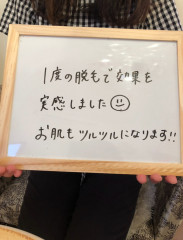 1度の脱毛で効果を
実感しました☺
お肌もツルツルになります!!